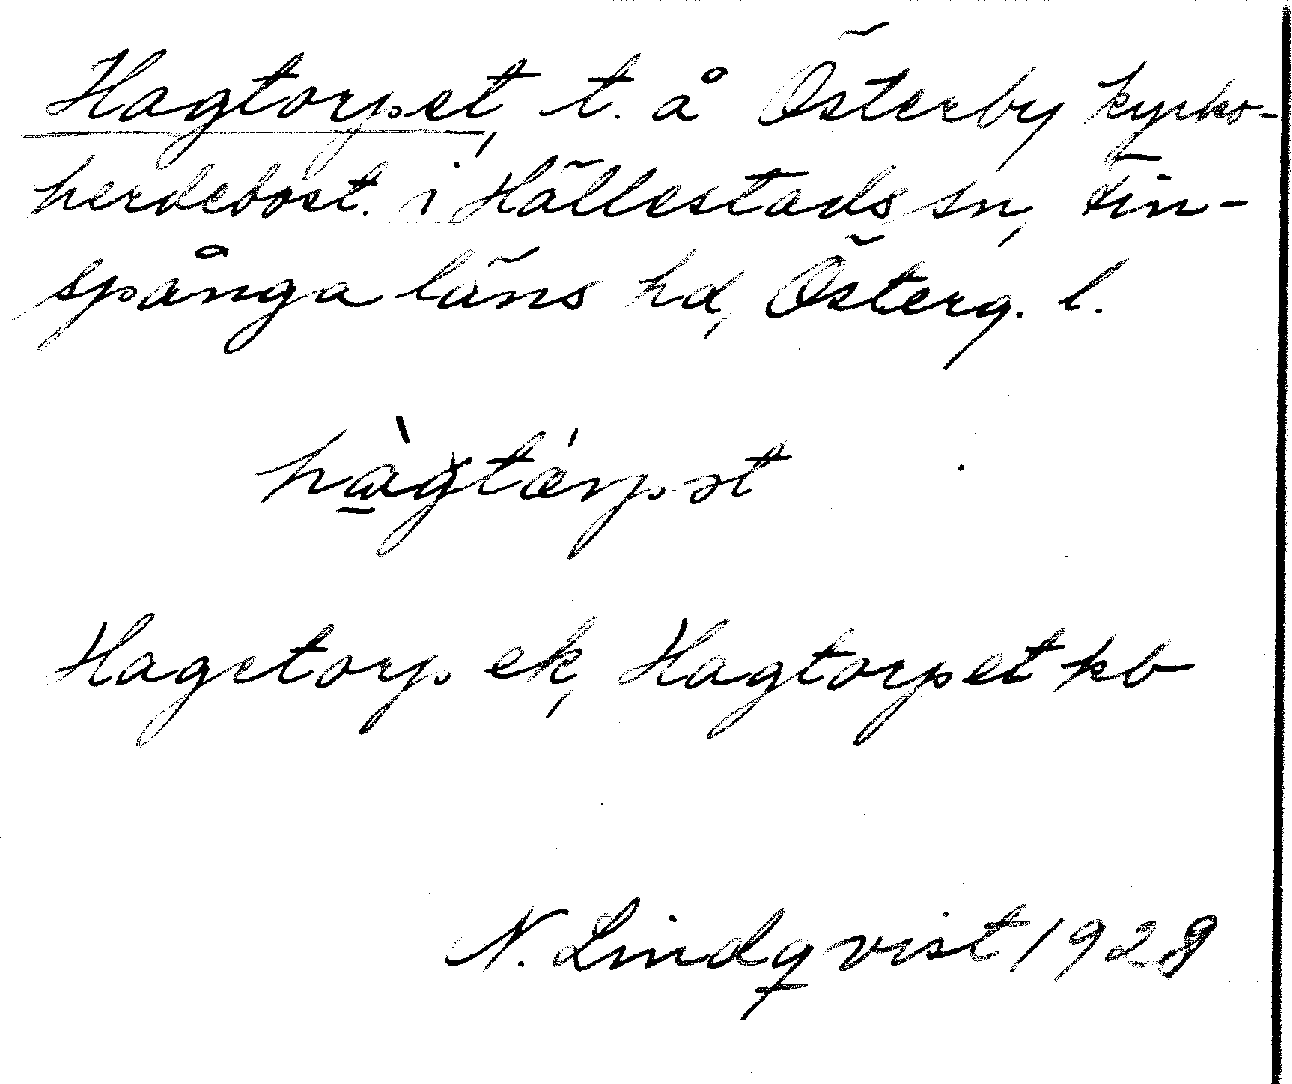 Hagtorpet, t. å Österby kyrko-
herdebost. i Hällestads sn, Fin-
spånga läns hd, Österg. l.
hàgtórpət
Hagetorp ek, Hagtorpet kb
N. Lindqvist 1928